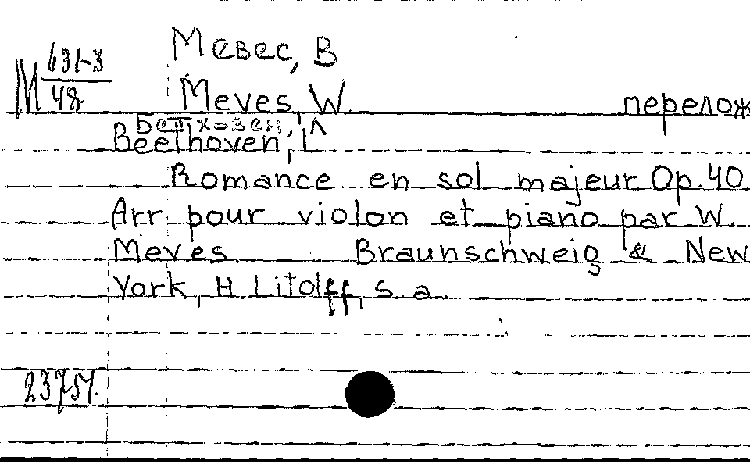 Мевес, В
М 631-3
48
Meves, W. перелож
Бетховен, Л
Beethoven, L
Romance en sol majeur Op. 40
Arr pour violon et piano par W.
Meves Braunschweig & New
York, H Litolff, s. a.
23751.